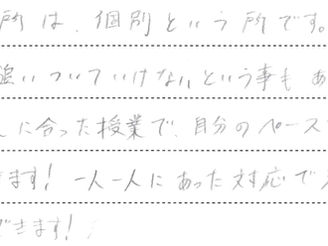 所は、個別という所です。
追いついていけないという事も あ
に合った授業で、自分のペース
ます！ 一人一人にあった対応で
できます！